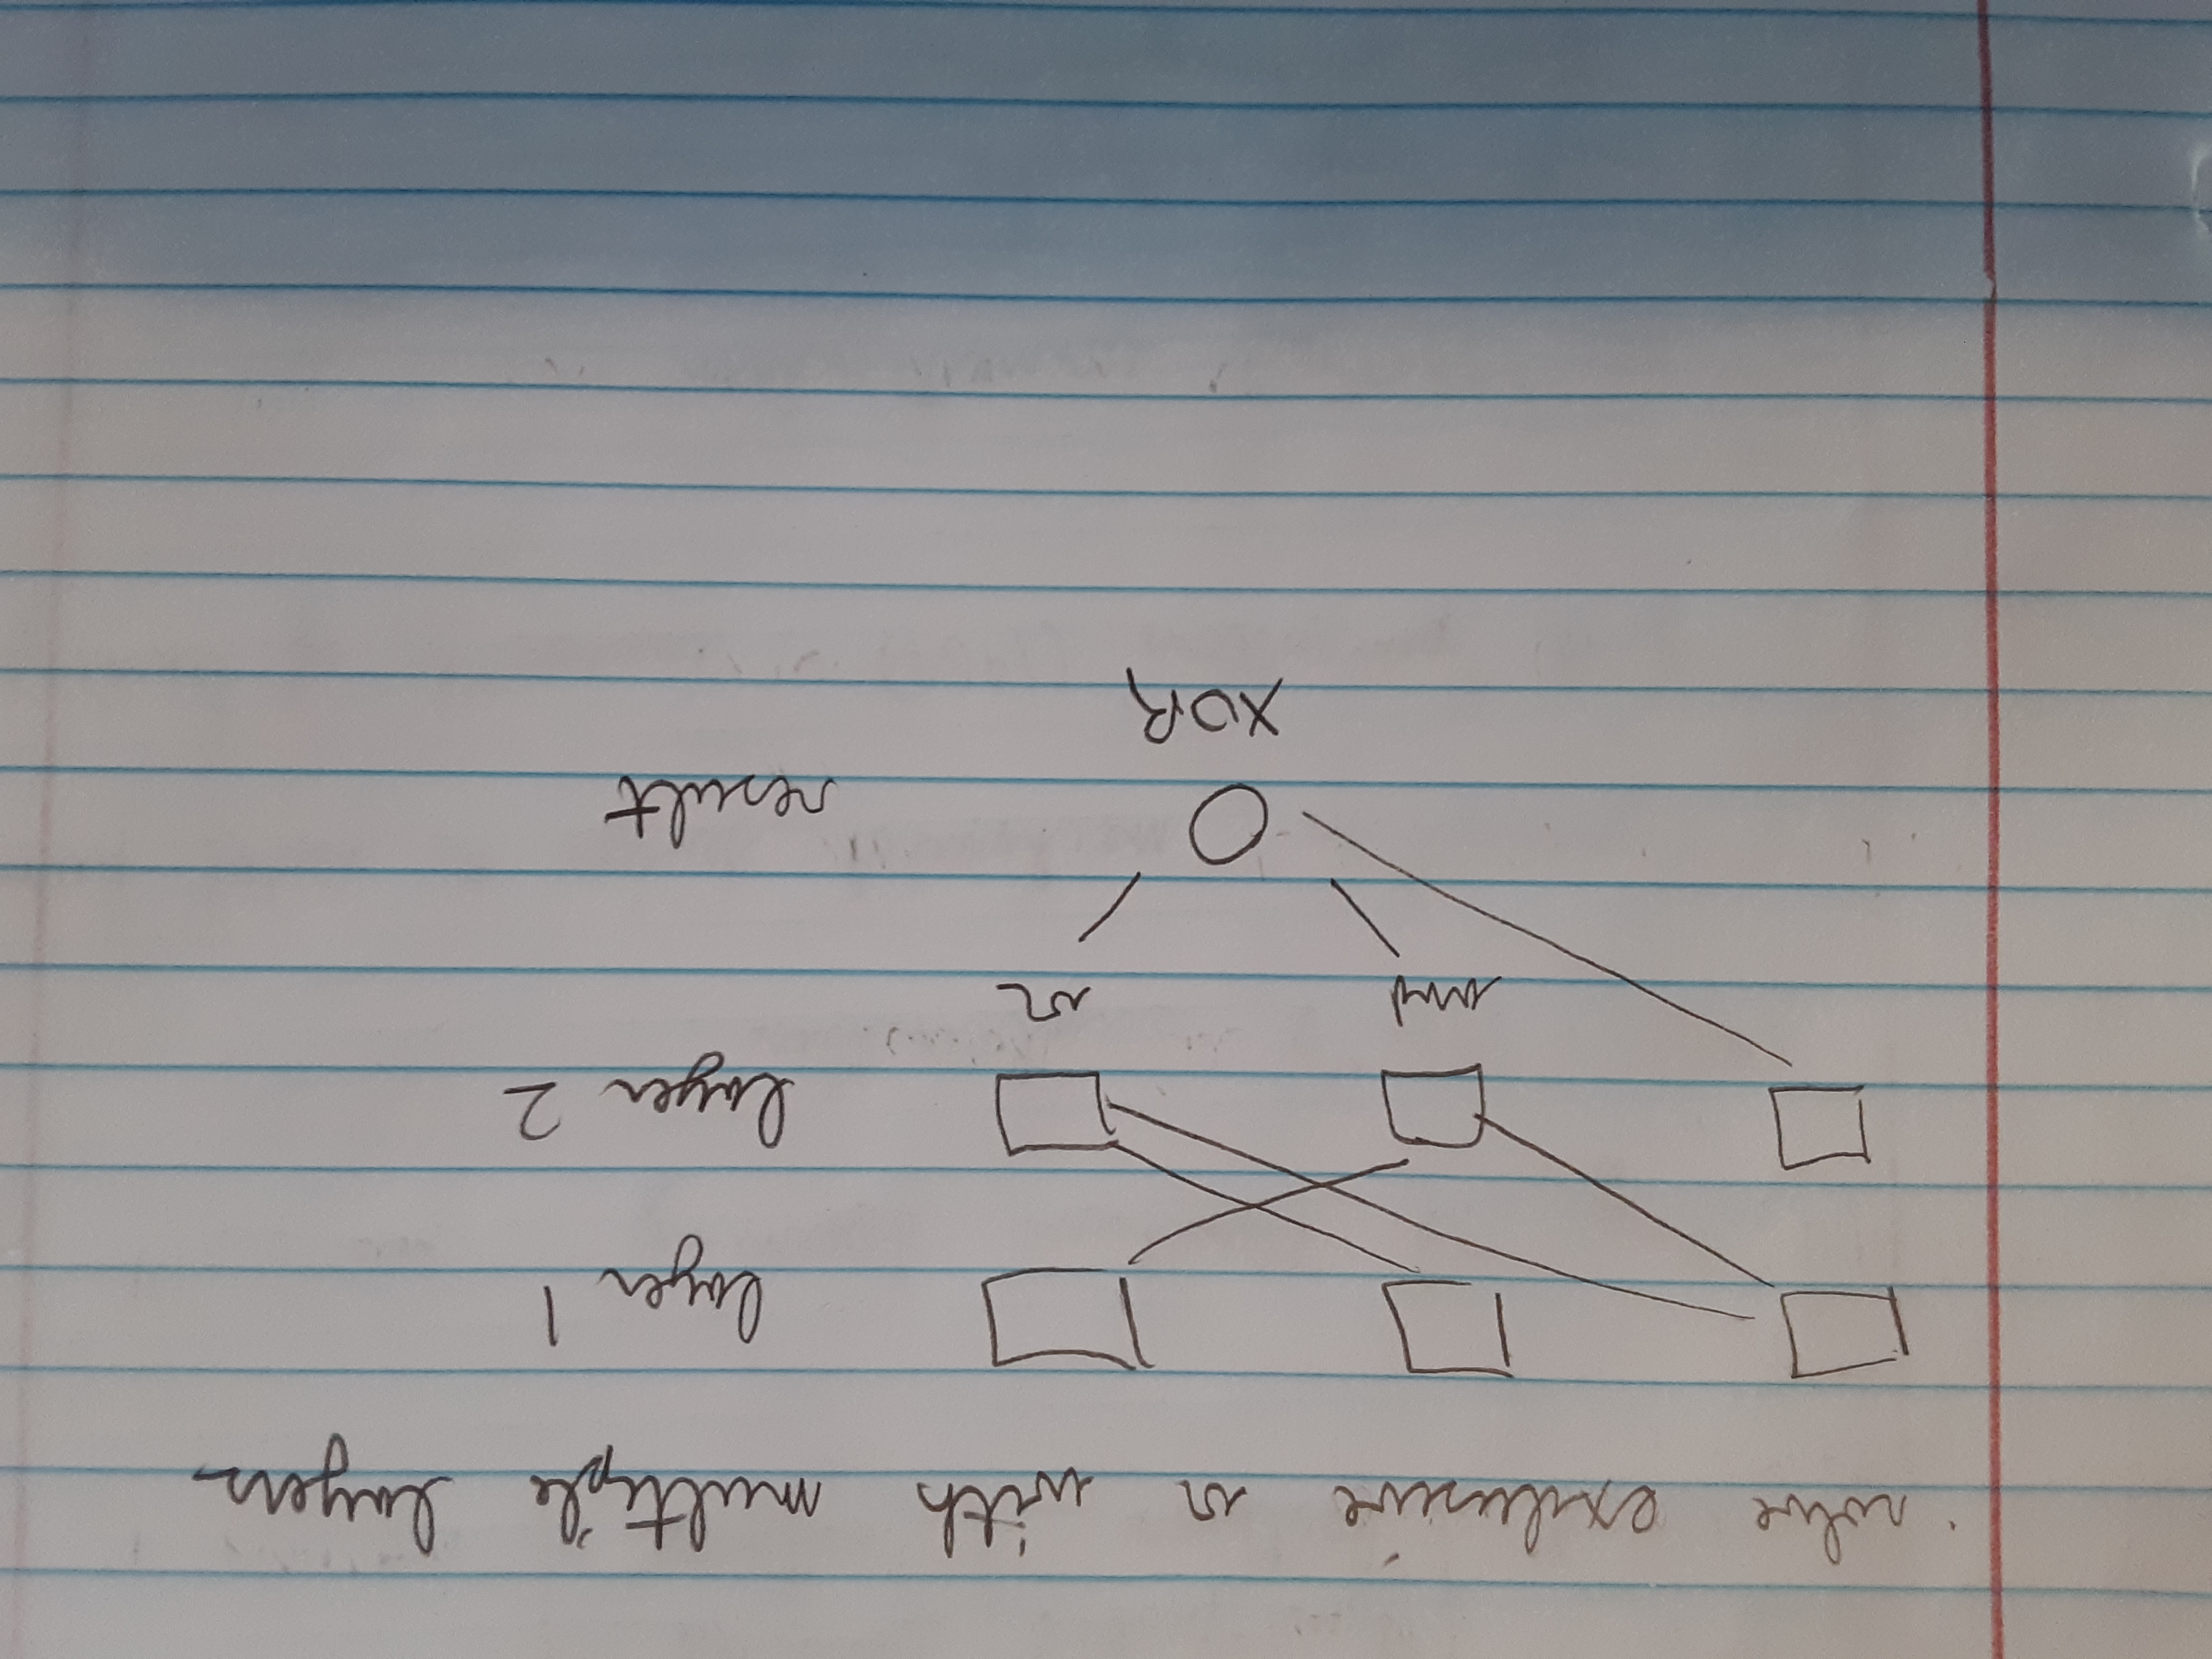 solve exclusive or with multiple layers
layer 1
layer 2
and or
result
XOR